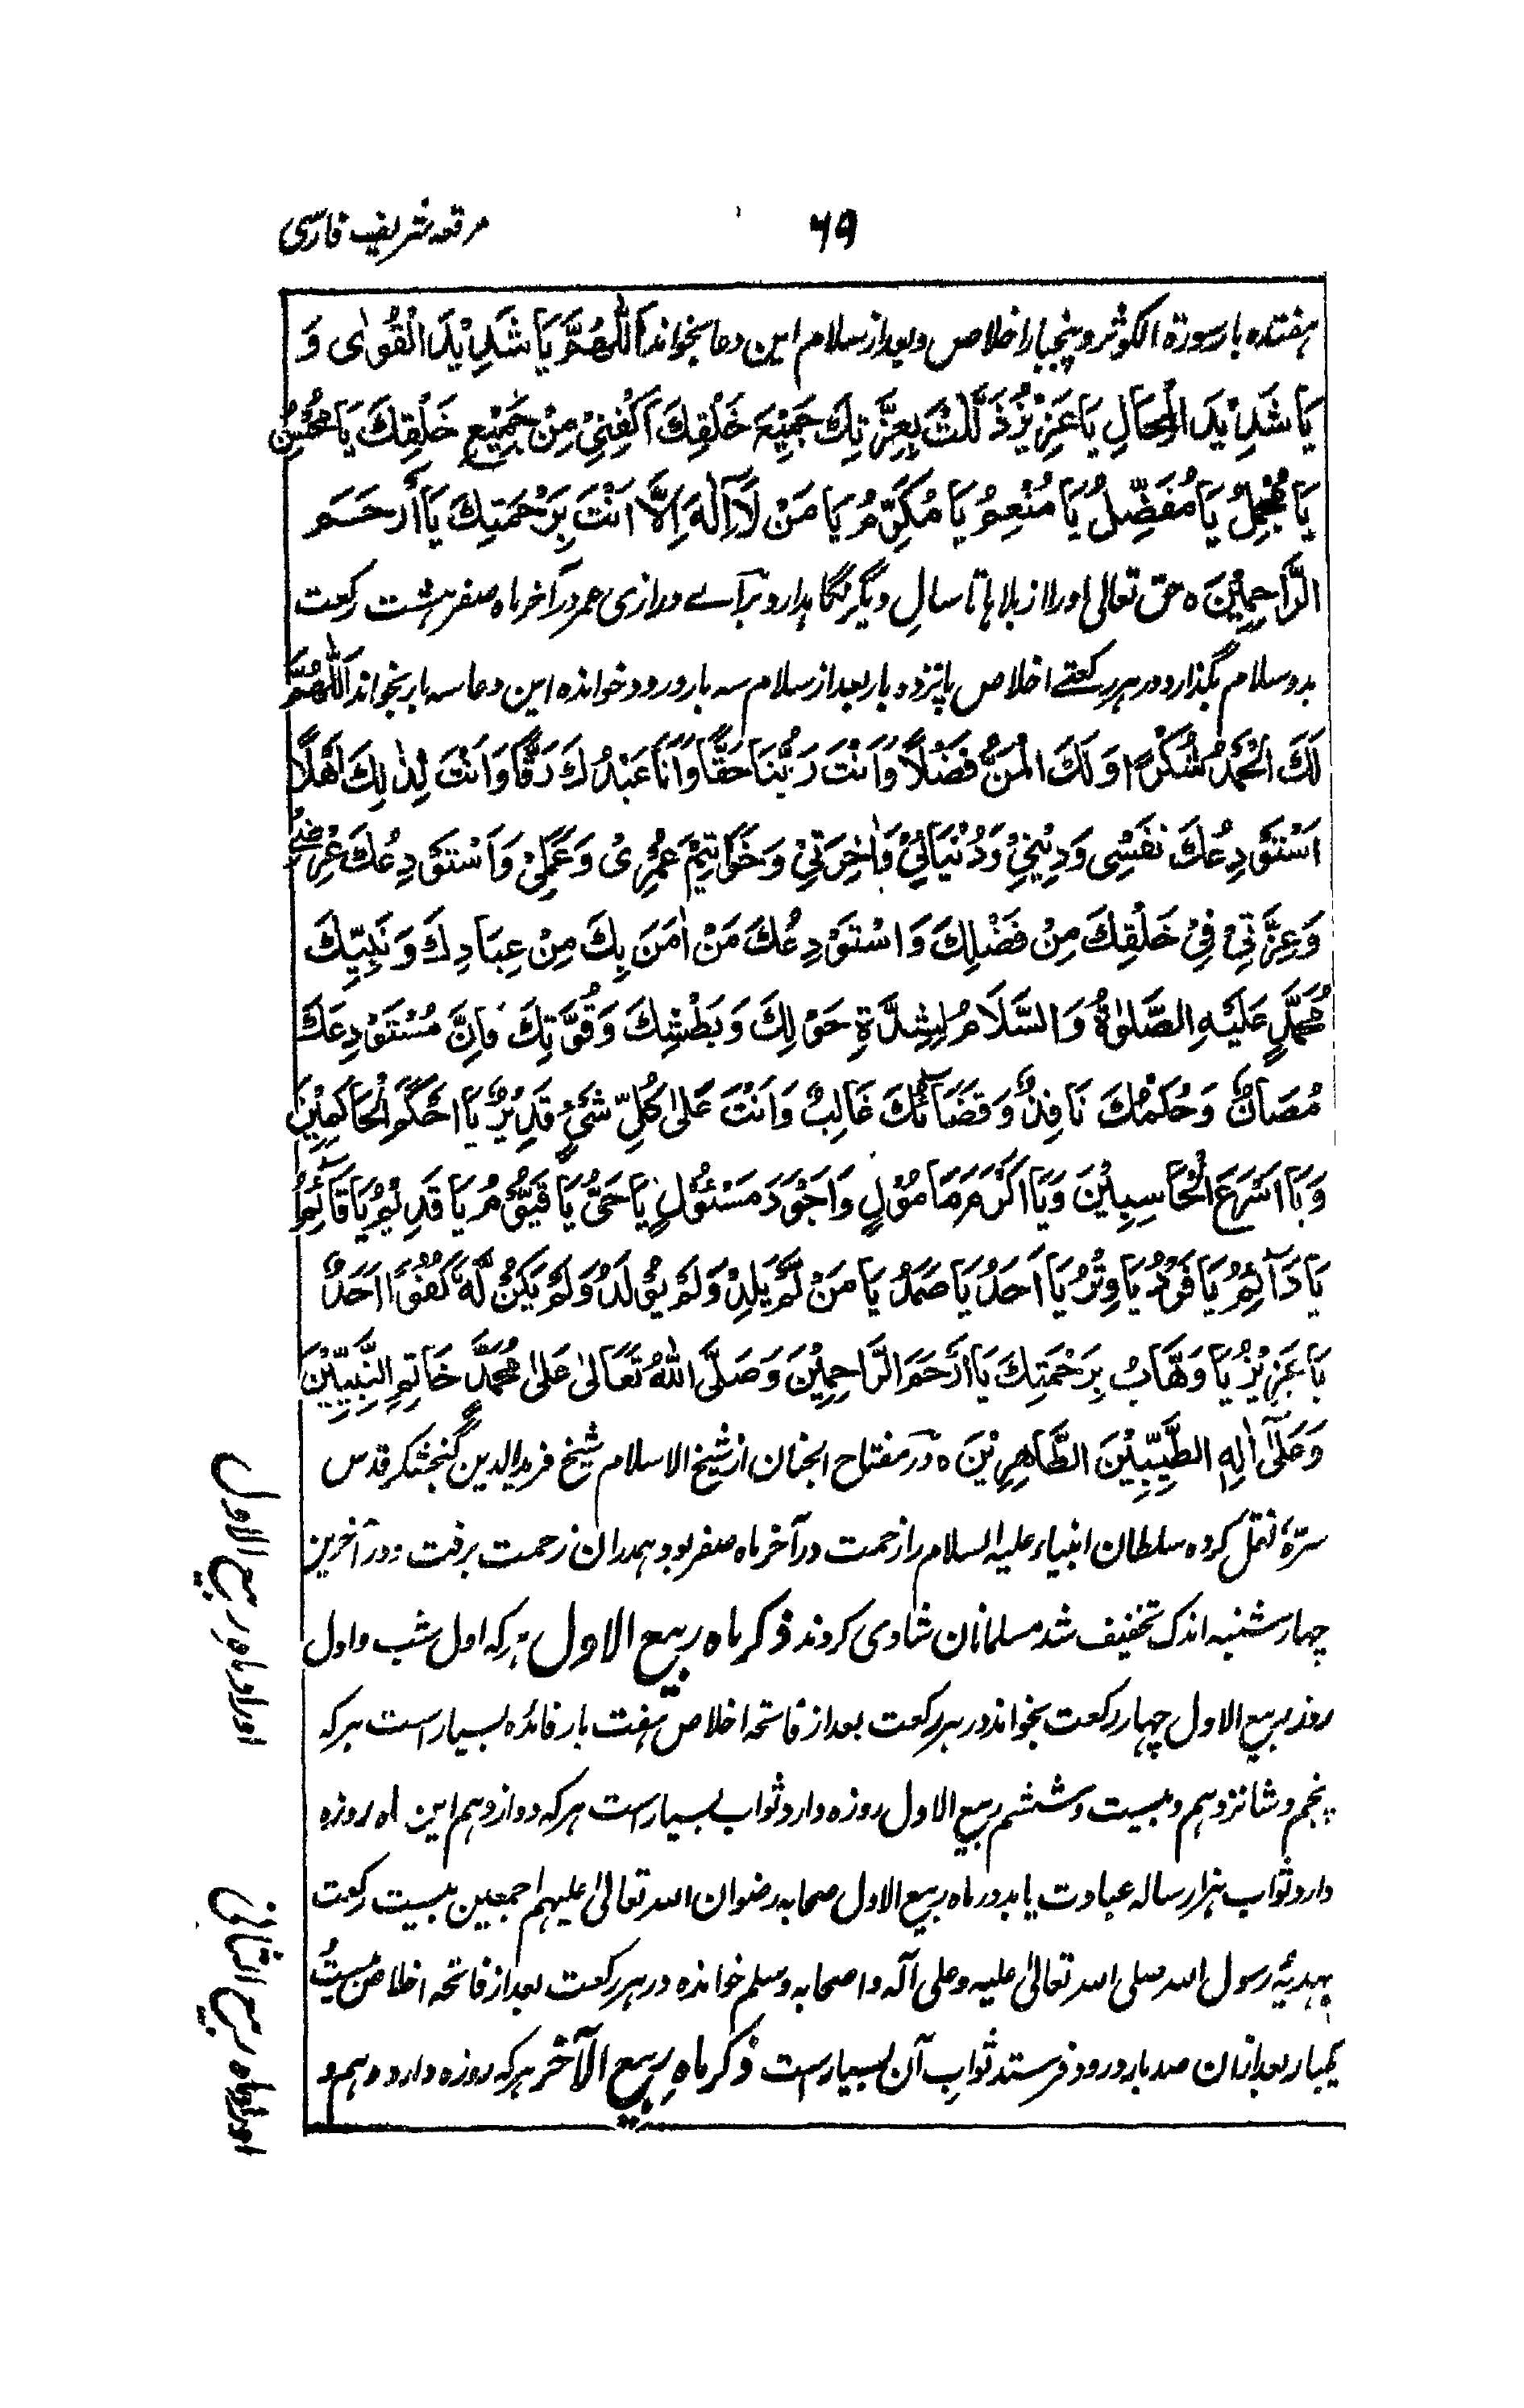 مرقعہ شریف فارسی
۶۹
ہفتدہ بار سورۃ الکوثر و پنجبار اخلاص و بعد از سلام این دعا بخواند اَللّٰهُمَّ یَا شَدِیْدَ الْقُوٰی وَ
یَا شَدِیْدَ الْمِحَالِ یَا عَزِیْزُ ذَلَّلْتَ بِعِزَّتِكَ جَمِیْعَ خَلْقِكَ اَكْفِنِیْ مِنْ جَمِیْعِ خَلْقِكَ یَا مُحْسِنُ
یَا مُجْمِلُ یَا مُفَضِّلُ یَا مُنْعِمُ یَا مُكَرِّمُ یَا مَنْ لَآ اِلٰهَ اِلَّا اَنْتَ بِرَحْمَتِكَ یَا اَرْحَمَ
الرَّاحِمِیْنَ ہ حق تعالی اورا از بلاہا تا سالِ دیگر نگاہدارد برآے درازی عمر در آخر ماہ صفر ہشت رکعت
بدو سلام بگذارد در ہر رکعتے اخلاص پانزدہ بار بعد از سلام سہ بار درود خواندہ این دعا سہ بار بخواند اَللّٰهُمَّ
لَكَ الْحَمْدُ شُكْرًا وَلَكَ الْمَنُّ فَضْلًا وَاَنْتَ رَبُّنَا حَقًّا وَاَنَا عَبْدُكَ رَقًّا وَاَنْتَ لِذٰلِكَ اَهْلًا
اَسْتَوْدِعُكَ نَفْسِی وَدِیْنِیْ وَدُنْیَائِیْ وَاٰخِرَتِیْ وَخَوَاتِیْمَ عُمْرِیْ وَعَمَلِیْ وَاَسْتَوْدِعُكَ عِرْضِیْ
وَعِزَّتِیْ فِیْ خَلْقِكَ مِنْ فَضْلِكَ وَاَسْتَوْدِعُكَ مَنْ اٰمَنَ بِكَ مِنْ عِبَادِكَ وَنَبِیِّكَ
مُحَمَّدٍ عَلَیْهِ الصَّلٰوةُ وَالسَّلَامُ لِشِدَّةِ حَوْلِكَ وَبَطْشِكَ وَقُوَّتِكَ فَاِنَّ مُسْتَوْدِعَكَ
مُصَانٌ وَحُكْمُكَ نَافِذٌ وَقَضَآئُكَ غَالِبٌ وَاَنْتَ عَلٰی كُلِّ شَیْءٍ قَدِیْرٌ یَا اَحْكَمَ الْحَاكِمِیْنَ
وَیَا اَسْرَعَ الْحَاسِبِیْنَ وَیَا اَكْرَمَ مَامُوْلٍ وَاَجْوَدَ مَسْئُوْلٍ یَا حَیُّ یَا قَیُّوْمُ یَا قَدِیْمُ یَا قَآئِمُ
یَا دَآئِمُ یَا فَرْدُ یَا وِتْرُ یَا اَحَدُ یَا صَمَدُ یَا مَنْ لَّمْ یَلِدْ وَلَمْ یُوْلَدْ وَلَمْ یَكُنْ لَّهٗ كُفُوًا اَحَدٌ
یَا عَزِیْزُ یَا وَهَّابُ بِرَحْمَتِكَ یَا اَرْحَمَ الرَّاحِمِیْنَ وَصَلَّی اللّٰهُ تَعَالٰی عَلٰی مُحَمَّدٍ خَاتِمِ النَّبِیِّیْنَ
وَعَلٰٓی اٰلِهِ الطَّیِّبِیْنَ الطَّاهِرِیْنَ ہ در مفتاح الجنان از شیخ الاسلام شیخ فرید الدین گنجشکر قدس
سرّہٗ نقل کردہ سلطان انبیاء علیہ السلام را زحمت در آخر ماہ صفر بود و ہمدران زحمت برفت و در آخرین
چہار شنبہ اندک تخفیف شد مسلمانان شادی کردند ذکر ماہ ربیع الاول ہرکہ اول شب و اول
روز ربیع الاول چہار رکعت بخواند در ہر رکعت بعد از فاتحہ اخلاص ہفت بار فائدہ بسیار است ہرکہ
پنجم و شانزدہم و بیست و ششم ربیع الاول روزہ دارد ثواب بسیار است ہرکہ دوازدہم این ماہ روزہ
دارد ثواب ہزار سالہ عبادت یابد در ماہ ربیع الاول صحابہ رضوان اللہ تعالیٰ علیہم اجمعین بیست رکعت
بہدیۂ رسول اللہ صلی اللہ تعالیٰ علیہ وعلی آلہ واصحابہ وسلم خواندہ در ہر رکعت بعد از فاتحہ اخلاص بیست
یکبار بعد ازان صد بار درود فرستد ثواب آن بسیار است ذکر ماہِ ربیع الآخر ہرکہ روزہ دارد دہم و
اوراد ماہ ربیع الاول
اوراد ماہ ربیع الثانی